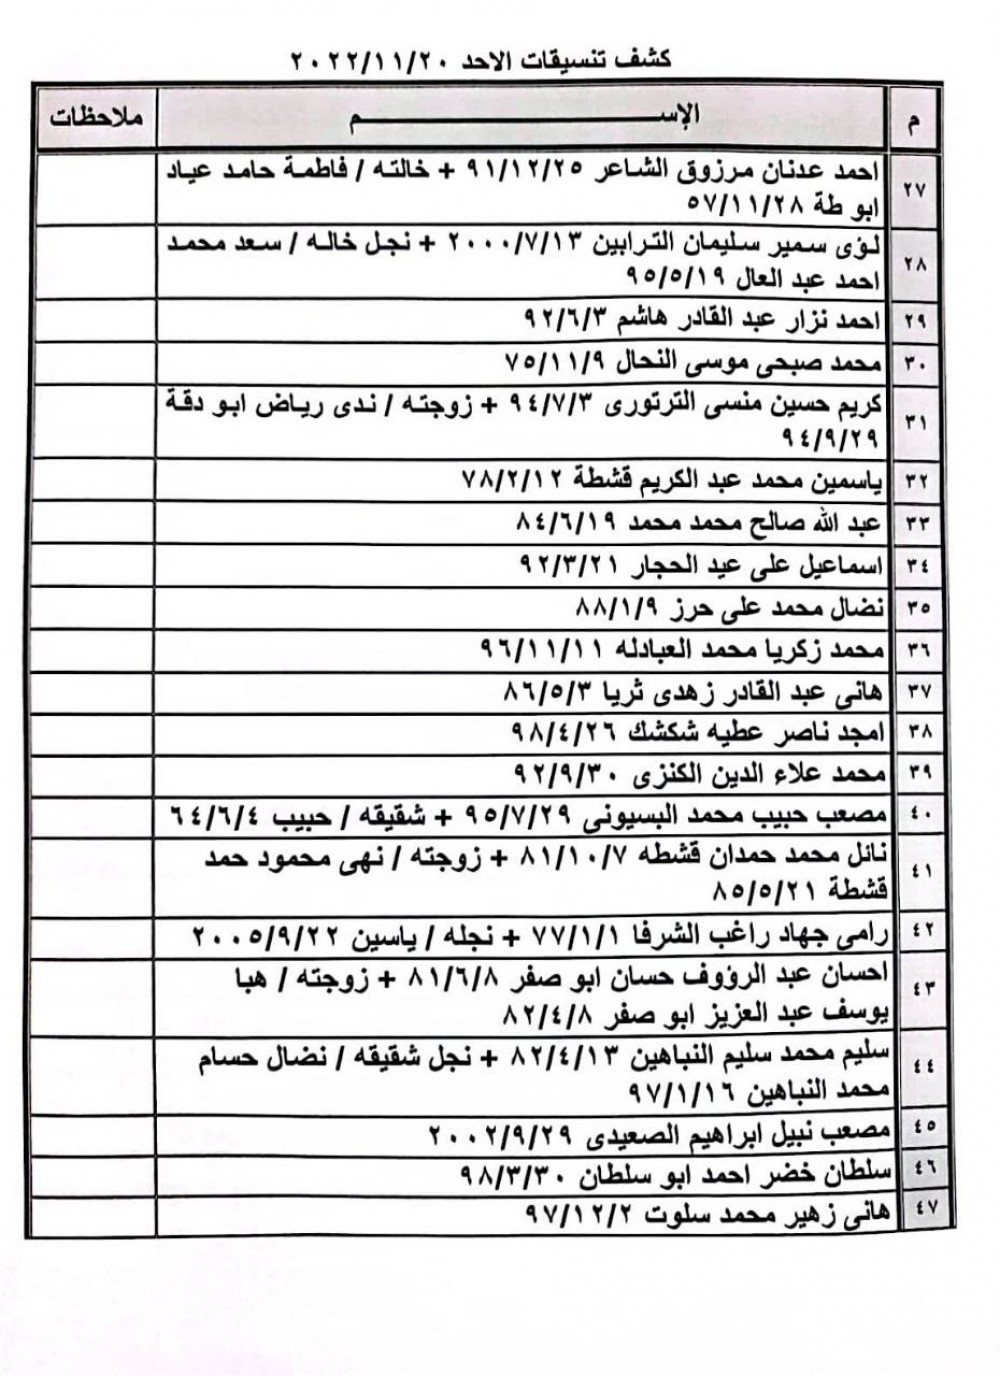 كشف تنسيقات الاحد ٢٠٢٢/١١/٢٠
م الإســـــــــم ملاحظات
٢٧ احمد عدنان مرزوق الشاعر ٩١/١٢/٢٥ + خالته / فاطمة حامد عياد
ابو طة ٥٧/١١/٢٨
٢٨ لؤى سمير سليمان الترابين ٢٠٠٠/٧/١٣ + نجل خاله / سعد محمد
احمد عبد العال ٩٥/٥/١٩
٢٩ احمد نزار عبد القادر هاشم ٩٢/٦/٣
٣٠ محمد صبحى موسى النحال ٧٥/١١/٩
٣١ كريم حسين منسى الترتورى ٩٤/٧/٣ + زوجته / ندى رياض ابو دقة
٩٤/٩/٢٩
٣٢ ياسمين محمد عبد الكريم قشطة ٧٨/٢/١٢
٣٣ عبد الله صالح محمد محمد ٨٤/٦/١٩
٣٤ اسماعيل على عيد الحجار ٩٢/٣/٢١
٣٥ نضال محمد على حرز ٨٨/١/٩
٣٦ محمد زكريا محمد العبادله ٩٦/١١/١١
٣٧ هانى عبد القادر زهدى ثريا ٨٦/٥/٣
٣٨ امجد ناصر عطيه شكشك ٩٨/٤/٢٦
٣٩ محمد علاء الدين الكنزى ٩٢/٩/٣٠
٤٠ مصعب حبيب محمد البسيونى ٩٥/٧/٢٩ + شقيقه / حبيب ٦٤/٦/٤
٤١ نائل محمد حمدان قشطه ٨١/١٠/٧ + زوجته / نهى محمود حمد
قشطة ٨٥/٥/٢١
٤٢ رامى جهاد راغب الشرفا ٧٧/١/١ + نجله / ياسين ٢٠٠٥/٩/٢٢
٤٣ احسان عبد الرؤوف حسان ابو صفر ٨١/٦/٨ + زوجته / هبا
يوسف عبد العزيز ابو صفر ٨٢/٤/٨
٤٤ سليم محمد سليم النباهين ٨٢/٤/١٣ + نجل شقيقه / نضال حسام
محمد النباهين ٩٧/١/١٦
٤٥ مصعب نبيل ابراهيم الصعيدى ٢٠٠٢/٩/٢٩
٤٦ سلطان خضر احمد ابو سلطان ٩٨/٣/٣٠
٤٧ هانى زهير محمد سلوت ٩٧/١٢/٢